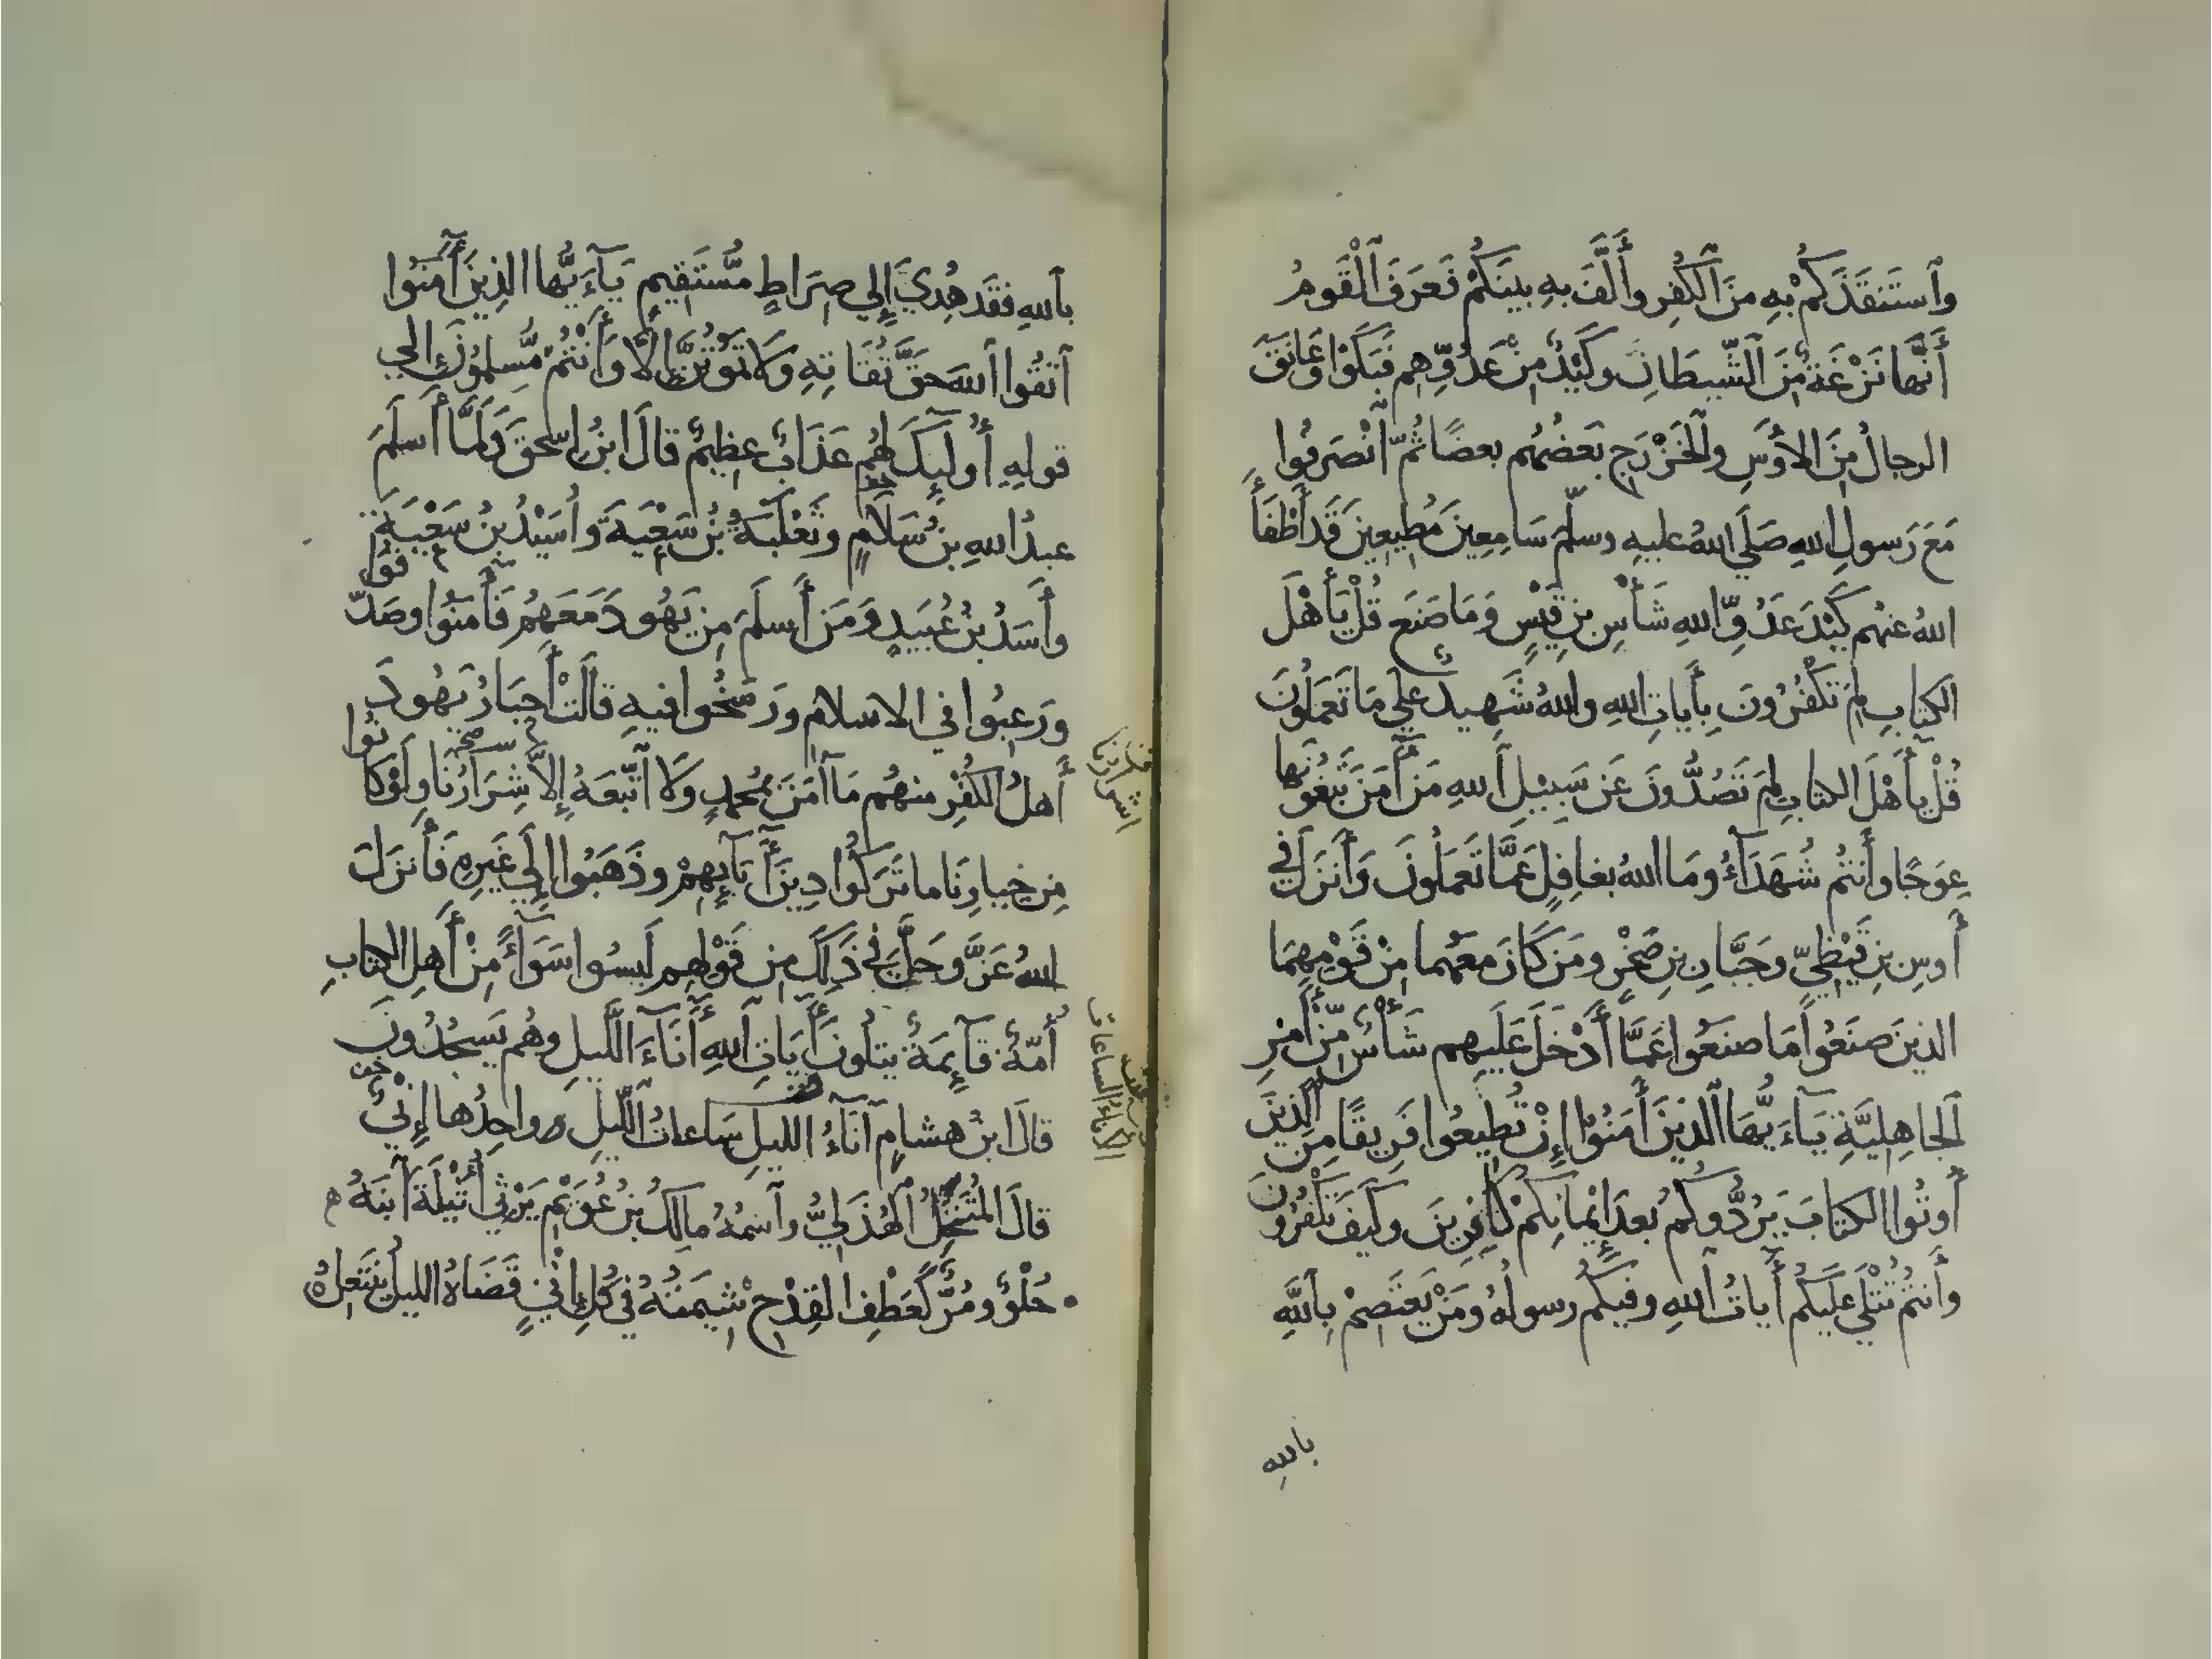 وَاستَنقَذَكُمْ بِهِ مِنَ الْكُفْرِ وأَلَّفَ بِهِ بينَكُمْ فَعَرَفَ الْقَومُ
أَنَّها نَزْغَةٌ مِّنَ الشَّيطَانِ وكَيْدٌ مِنْ عَدُوِّهِم فَبَكَوْا وعَانَقَ
الرجالُ مِنَ الأَوسِ والْخَزْرَجِ بَعضُهُم بعضًا ثُمَّ انْصَرَفُوا
مَعَ رَسولِ اللهِ صَلَّي اللهُ عليهِ وسلّمَ سَامِعِينَ مُطِيعِينَ قَد أَطْفَأَ
اللهُ عنهُم كَيْدَ عَدُوِّ اللهِ شَأْسِ بنِ قَيْسٍ وَمَا صَنَعَ قُلْ يَأَهْلَ
الكِتابِ لِمَ تَكْفُرُونَ بِأَيَاتِ اللهِ واللهُ شَهِيدٌ علي مَا تَعمَلُونَ
قُلْ يأَهْلَ الكتابِ لِمَ تَصُدُّونَ عَن سَبِيْلِ اللهِ مَن أَمَنَ تَبْغُونَها
عِوَجًا وأَنتُم شُهَدَآءُ ومَا اللهُ بغافِلٍ عَمَّا تَعمَلُونَ وَأَنزَلَ في
أَوسِ بنِ قَيْظِيٍّ وجَبَّارِ بنِ صَخْرٍ ومَن كَانَ معَهُما مِنْ قَوْمِهِمَا
الذينَ صَنَعُوا مَا صنَعُوا عَمَّا أَدْخَلَ عَلَيهِم شَأْسٌ مِّنْ أَمْرِ
الجَاهِلِيَّةِ يَآءَيُّهَا الذينَ أَمَنُوْا إِنْ تُطِيعُوا فَرِيقًا مِنَ الذِينَ
أُوتُوا الكتابَ يَرُدُّوكُم بعدَ إِيْمانِكُمْ كَافِرِينَ وكَيفَ تَكْفُرُونَ
وأَنتُمْ تُتْلَي علَيكُم أَياتُ اللهِ وفيكُم رسولُهُ ومَنْ يَعتَصِمْ بِاللَّهِ
باللهِ
باللهِ فقَد هُدِيَ إِلي صِرَاطٍ مُّسْتَقِيمٍ يَآءَيُّها الذِينَ أَمَنُوا
اتَّقُوا اللهَ حَقَّ تُقَاتِهِ وَلَا تَمُوتُنَّ إِلَّا وَأَنْتُمْ مُّسلِمُونَ إلي
قولِهِ أُولَئِكَ لهُم عَذَابٌ عظِيمٌ قالَ ابنُ إِسحٰقَ ولَمَّا أَسلَمَ
عبدُ اللهِ بنُ سَلَامٍ وثَعْلَبَةُ بنُ سَعْيَةَ وأُسَيْدُ بنُ سَعْيَةَ
وأَسَدُ بنُ عُبَيدٍ وَمَن أَسلَمَ مِن يَهُودَ مَعَهُم فَأَمَنُوا وصَدَّقُوا
ورَغِبُوا في الاسلامِ ورَسَخُوا فيهِ قالَتْ أَحبَارُ يَهُودَ
أَهلُ الكُفْرِ منهُم مَا آمَنَ بمُحمدٍ وَلَا اتَّبَعَهُ إِلَّا شِرَارُنَا ولَوْ كَانُوا
مِن خِيارِنَا ما تَرَكُوا دِينَ أَبَآئِهِمْ وذَهَبُوا إِلَي غَيرِهِ فَأَنزَلَ
اللهُ عَزَّ وجَلَّ في ذَلِكَ مِن قَوْلِهِم لَيسُوا سَوَآءً مِنْ أَهلِ الكتابِ
أُمَّةٌ قآئِمَةٌ يتلُونَ أَيَاتِ اللهِ أَنَآءَ اللَّيلِ وهُم يَسجُدُونَ
قالَ ابنُ هشامٍ آنَآءُ الليلِ سَاعاتُ اللَّيلِ وواحِدُها إِنْيٌ
قالَ المُتَنَخِّلُ الهُذَلِيُّ واسمُهُ مالِكُ بنُ عُوَيْمِرٍ يَرثِي أُثَيْلَةَ ابنَهُ
حُلْوٌ ومُرٌّ كَعَطْفِ القِدْحِ شِيمَتُهُ في كُلِّ إِنْيٍ قَضَاهُ الليلُ يَنتَعِلُ
اشرارنا